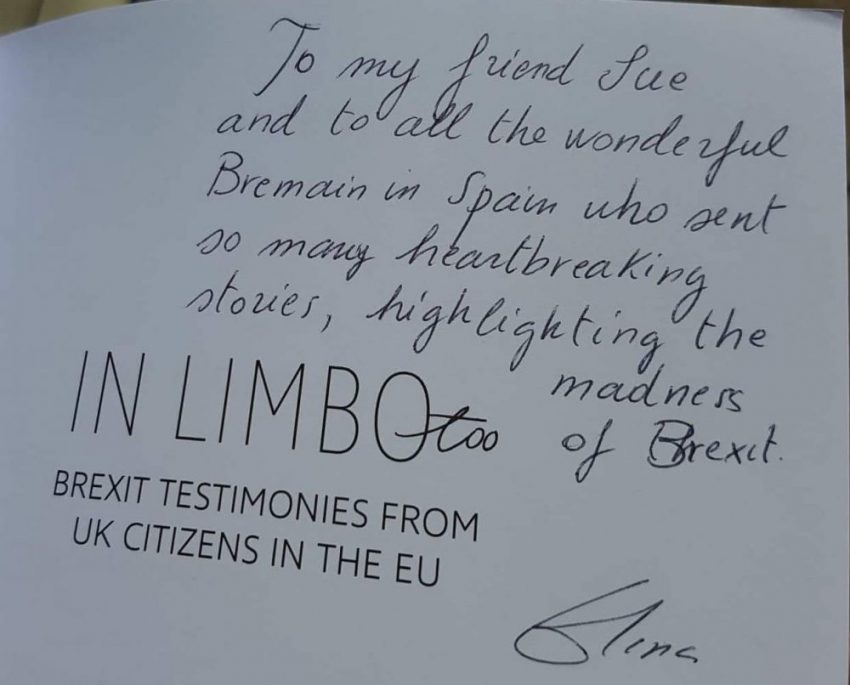 To my friend Sue
and to all the wonderful
Bremain in Spain who sent
so many heartbreaking
stories, highlighting the
madness
of Brexit.
IN LIMBO too
BREXIT TESTIMONIES FROM
UK CITIZENS IN THE EU
Elena